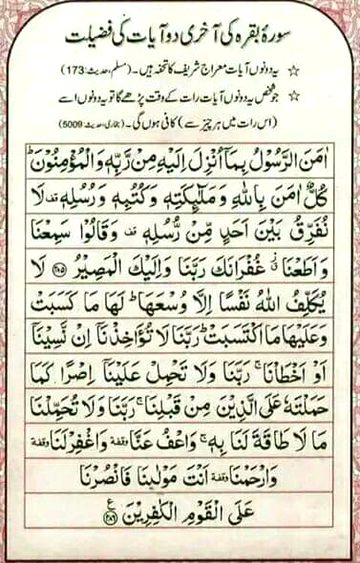 سورۂ بقرہ کی آخری دو آیات کی فضیلت
☆ یہ دونوں آیات معراج شریف کا تحفہ ہیں۔ (مسلم، حدیث: 173)
☆ جو شخص یہ دونوں آیات رات کے وقت پڑھے گا تو یہ دونوں اسے
(اس رات میں ہر چیز سے) کافی ہوں گی۔ (بخاری، حدیث: 5009)
اٰمَنَ الرَّسُوْلُ بِمَاۤ اُنْزِلَ اِلَیْهِ مِنْ رَّبِّهٖ وَالْمُؤْمِنُوْنَ ؕ
كُلٌّ اٰمَنَ بِاللّٰهِ وَ مَلٰٓىِٕكَتِهٖ وَ كُتُبِهٖ وَ رُسُلِهٖ ۫ لَا
نُفَرِّقُ بَیْنَ اَحَدٍ مِّنْ رُّسُلِهٖ ۫ وَ قَالُوْا سَمِعْنَا
وَ اَطَعْنَا ٘ۗ غُفْرَانَكَ رَبَّنَا وَ اِلَیْكَ الْمَصِیْرُ ﴿۲۸۵﴾ لَا
یُكَلِّفُ اللّٰهُ نَفْسًا اِلَّا وُسْعَهَا ؕ لَهَا مَا كَسَبَتْ
وَ عَلَیْهَا مَا اكْتَسَبَتْ ؕ رَبَّنَا لَا تُؤَاخِذْنَاۤ اِنْ نَّسِیْنَاۤ
اَوْ اَخْطَاْنَا ۚ رَبَّنَا وَ لَا تَحْمِلْ عَلَیْنَاۤ اِصْرًا كَمَا
حَمَلْتَهٗ عَلَی الَّذِیْنَ مِنْ قَبْلِنَا ۚ رَبَّنَا وَ لَا تُحَمِّلْنَا
مَا لَا طَاقَةَ لَنَا بِهٖ ۚ وَ اعْفُ عَنَّا وقفة وَ اغْفِرْ لَنَا وقفة
وَ ارْحَمْنَا وقفة اَنْتَ مَوْلٰىنَا فَانْصُرْنَا
عَلَی الْقَوْمِ الْكٰفِرِیْنَ ﴿۲۸۶﴾ ع